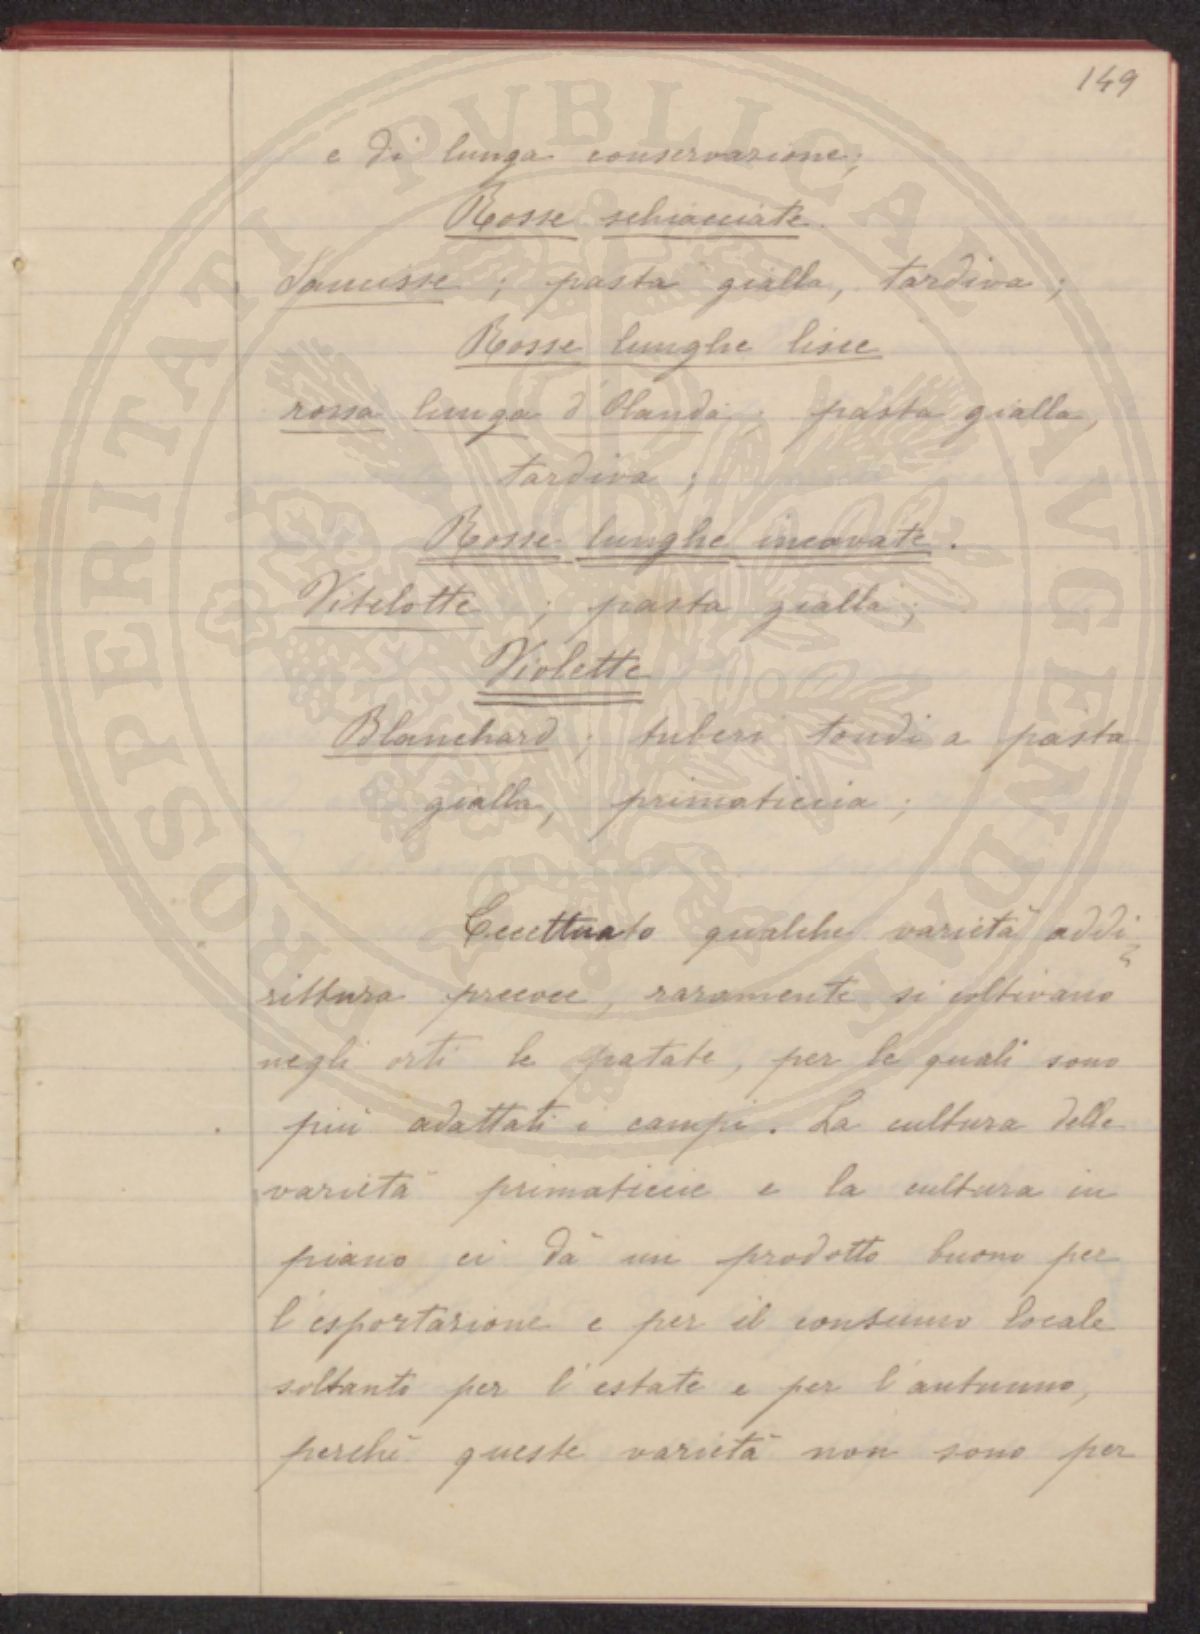 149
e di lunga conservazione;
Rosse schiacciate.
Saucisse ; pasta gialla, tardiva ;
Rosse lunghe liscie
rossa lunga d'Olanda ; pasta gialla,
tardiva ;
Rosse lunghe incavate.
Vitelotte ; pasta gialla ;
Violette
Blanchard ; tuberi tondi a pasta
gialla, primaticcia ;
Eccettuato qualche varietà addi
rittura precoce, raramente si coltivano
negli orti le patate, per le quali sono
più adattati i campi. La cultura delle
varietà primaticcie e la cultura in
piano ci dà un prodotto buono per
l'esportazione e per il consumo locale
soltanto per l'estate e per l'autunno,
perchè queste varietà non sono per
PROSPERITATI PUBLICAE AVGENDAE